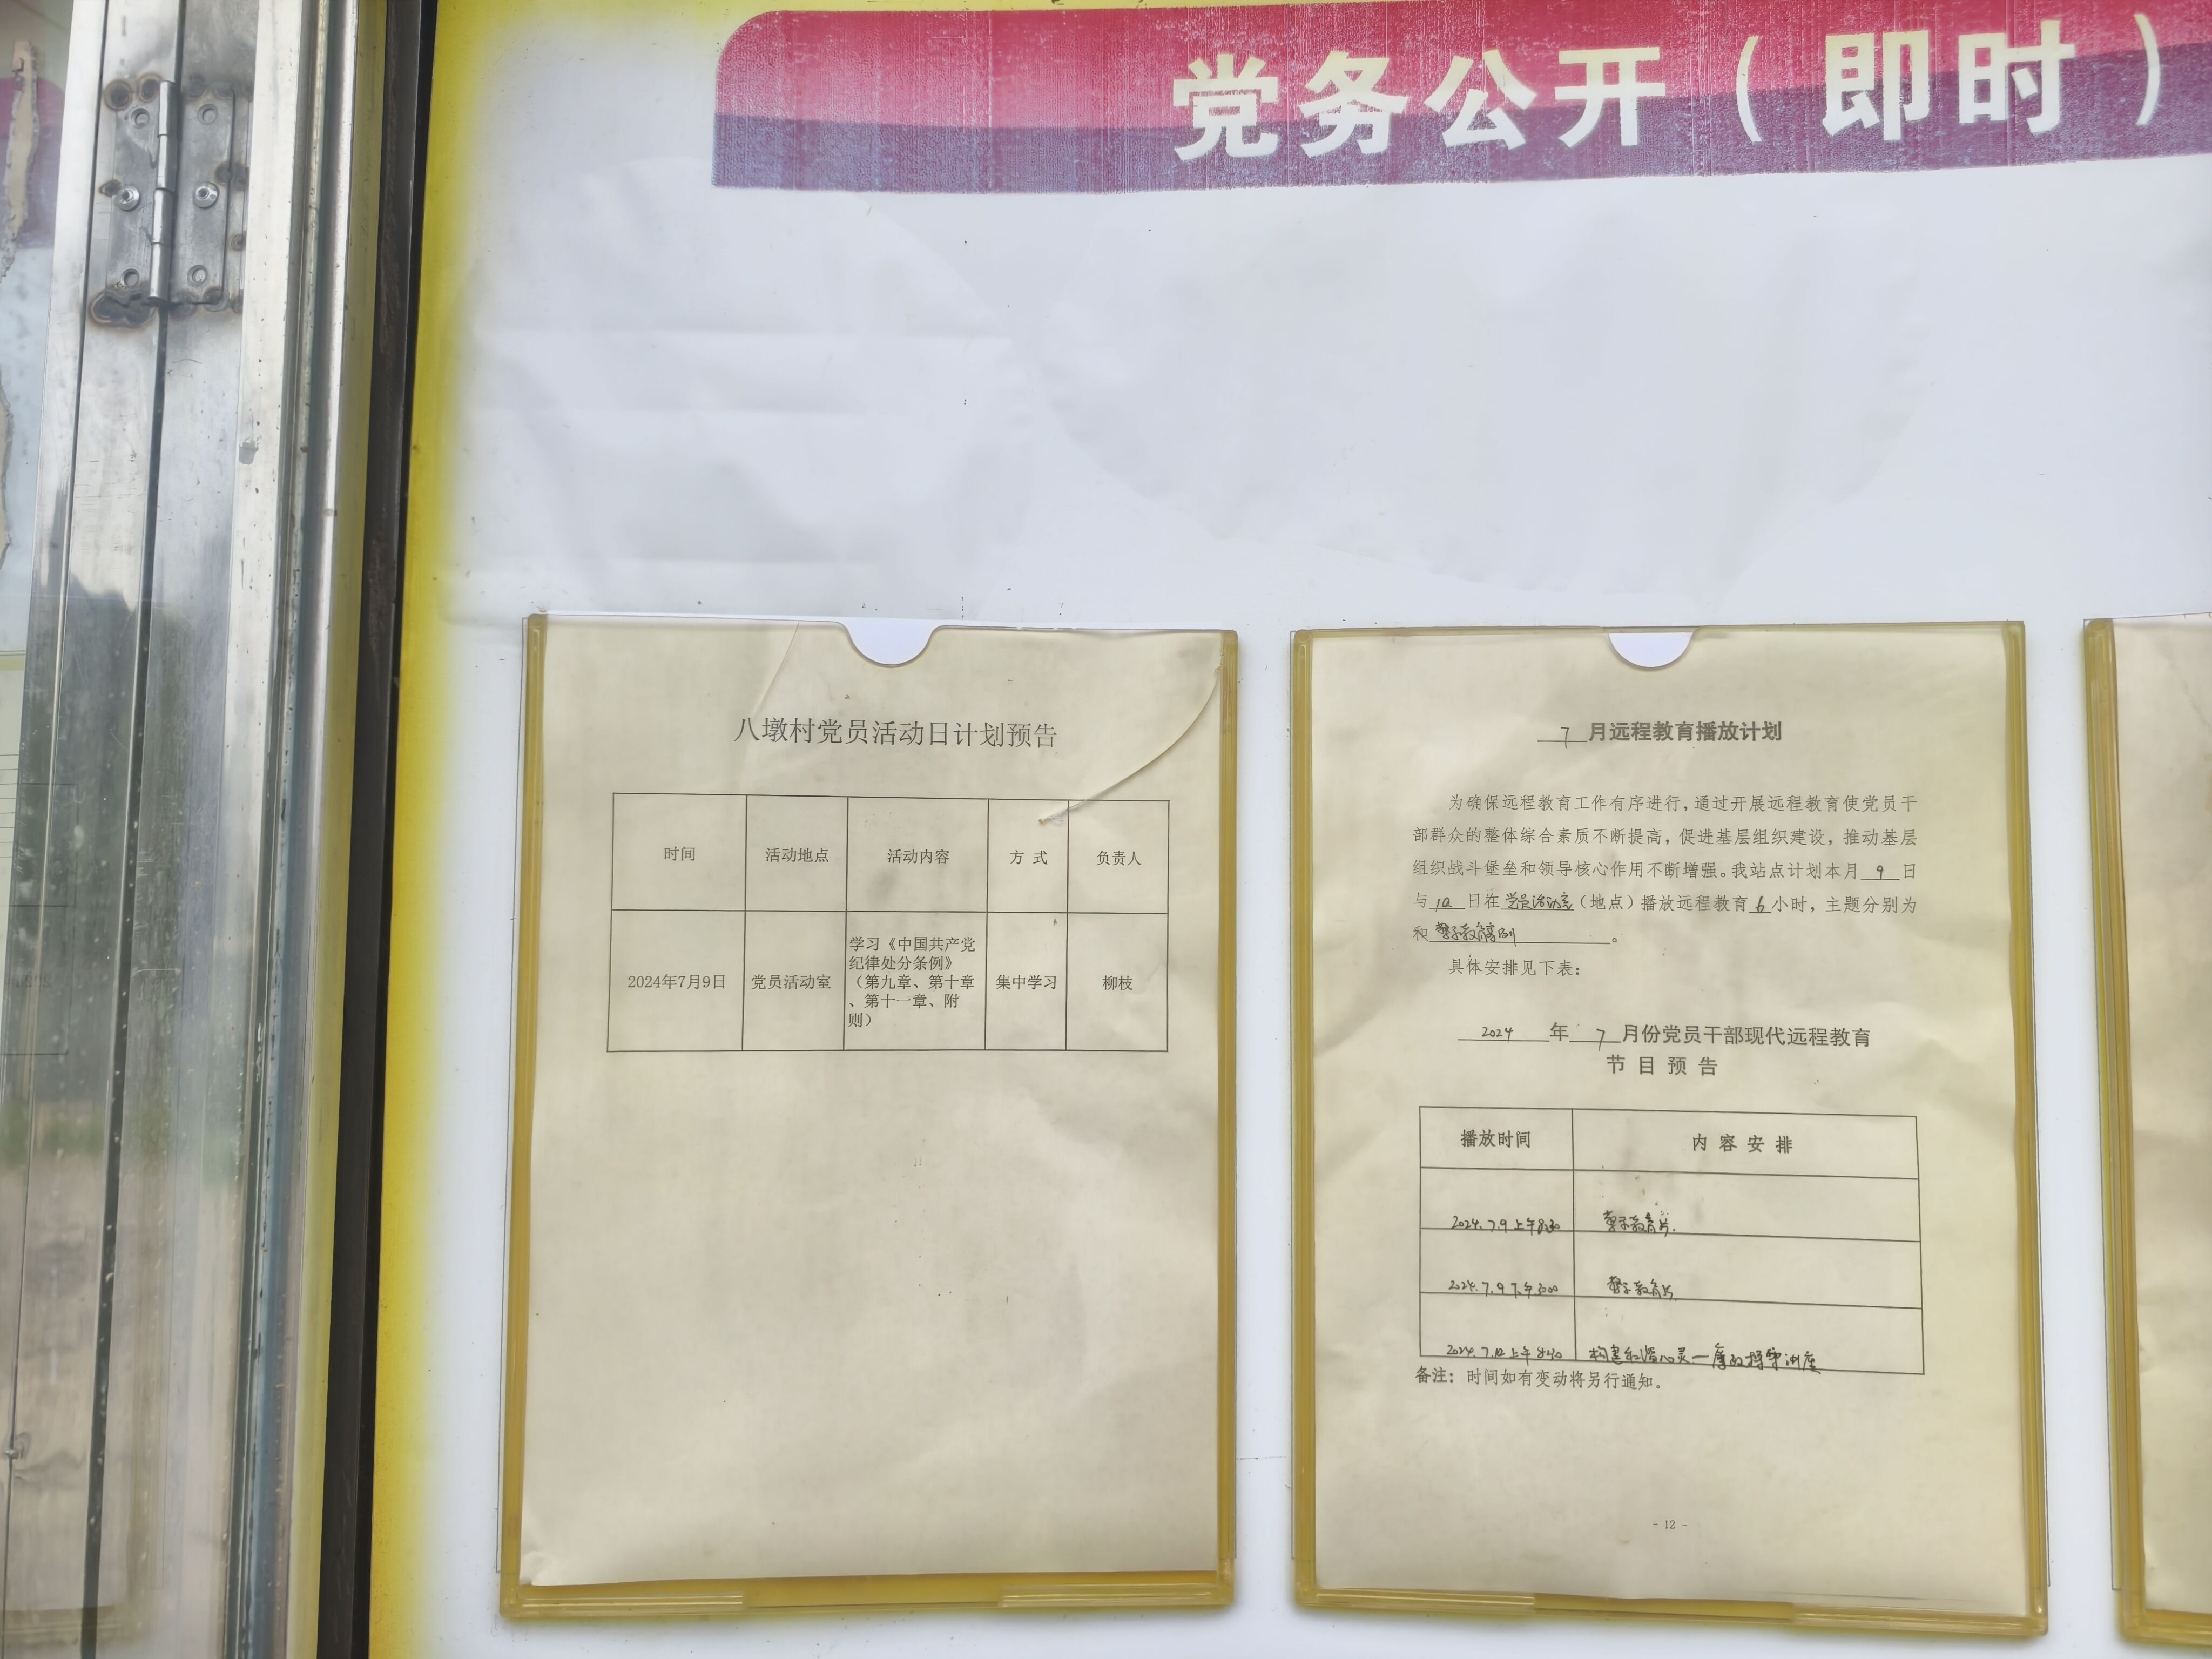 党务公开（即时）
八墩村党员活动日计划预告
时间 活动地点 活动内容 方 式 负责人
2024年7月9日 党员活动室 学习《中国共产党
纪律处分条例》
（第九章、第十章
、第十一章、附
则） 集中学习 柳枝
7 月远程教育播放计划
为确保远程教育工作有序进行，通过开展远程教育使党员干
部群众的整体综合素质不断提高，促进基层组织建设，推动基层
组织战斗堡垒和领导核心作用不断增强。我站点计划本月 9 日
与 日在 党员活动室（地点）播放远程教育 6 小时，主题分别为
和 警示教育 。
具体安排见下表：
2024 年 7 月份党员干部现代远程教育
节 目 预 告
播放时间 内 容 安 排
2024.7.9上午8:30 警示教育片.
2024.7.9下午3:00 警示教育片.
上午 构建和谐心灵一
备注：时间如有变动将另行通知。
- 12 -